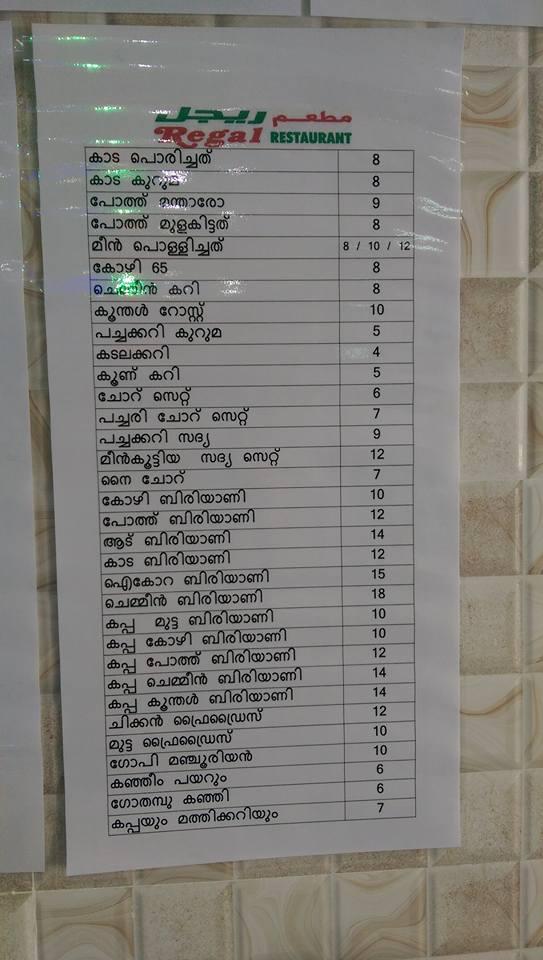 مطعم ريجل
Regal RESTAURANT
കാട പൊരിച്ചത് 8
കാട കുറുമ 8
പോത്ത് മന്താരോ 9
പോത്ത് മുളകിട്ടത് 8
മീൻ പൊള്ളിച്ചത് 8 / 10 / 12
കോഴി 65 8
ചെമ്മീൻ കറി 8
കൂന്തൾ റോസ്റ്റ് 10
പച്ചക്കറി കുറുമ 5
കടലക്കറി 4
കൂണ് കറി 5
ചോറ് സെറ്റ് 6
പച്ചരി ചോറ് സെറ്റ് 7
പച്ചക്കറി സദ്യ 9
മീൻകൂട്ടിയ സദ്യ സെറ്റ് 12
നൈ ചോറ് 7
കോഴി ബിരിയാണി 10
പോത്ത് ബിരിയാണി 12
ആട് ബിരിയാണി 14
കാട ബിരിയാണി 12
ഐകോറ ബിരിയാണി 15
ചെമ്മീൻ ബിരിയാണി 18
കപ്പ മുട്ട ബിരിയാണി 10
കപ്പ കോഴി ബിരിയാണി 10
കപ്പ പോത്ത് ബിരിയാണി 12
കപ്പ ചെമ്മീൻ ബിരിയാണി 14
കപ്പ കൂന്തൾ ബിരിയാണി 14
ചിക്കൻ ഫ്രൈഡ്രൈസ് 12
മുട്ട ഫ്രൈഡ്രൈസ് 10
ഗോപി മഞ്ചൂരിയൻ 10
കഞ്ഞീം പയറും 6
ഗോതമ്പു കഞ്ഞി 6
കപ്പയും മത്തിക്കറിയും 7